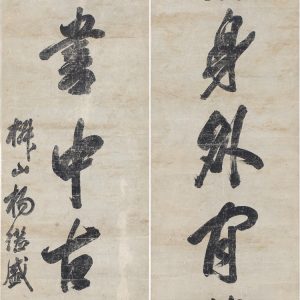 身外有
書中古
楙山楊繼盛